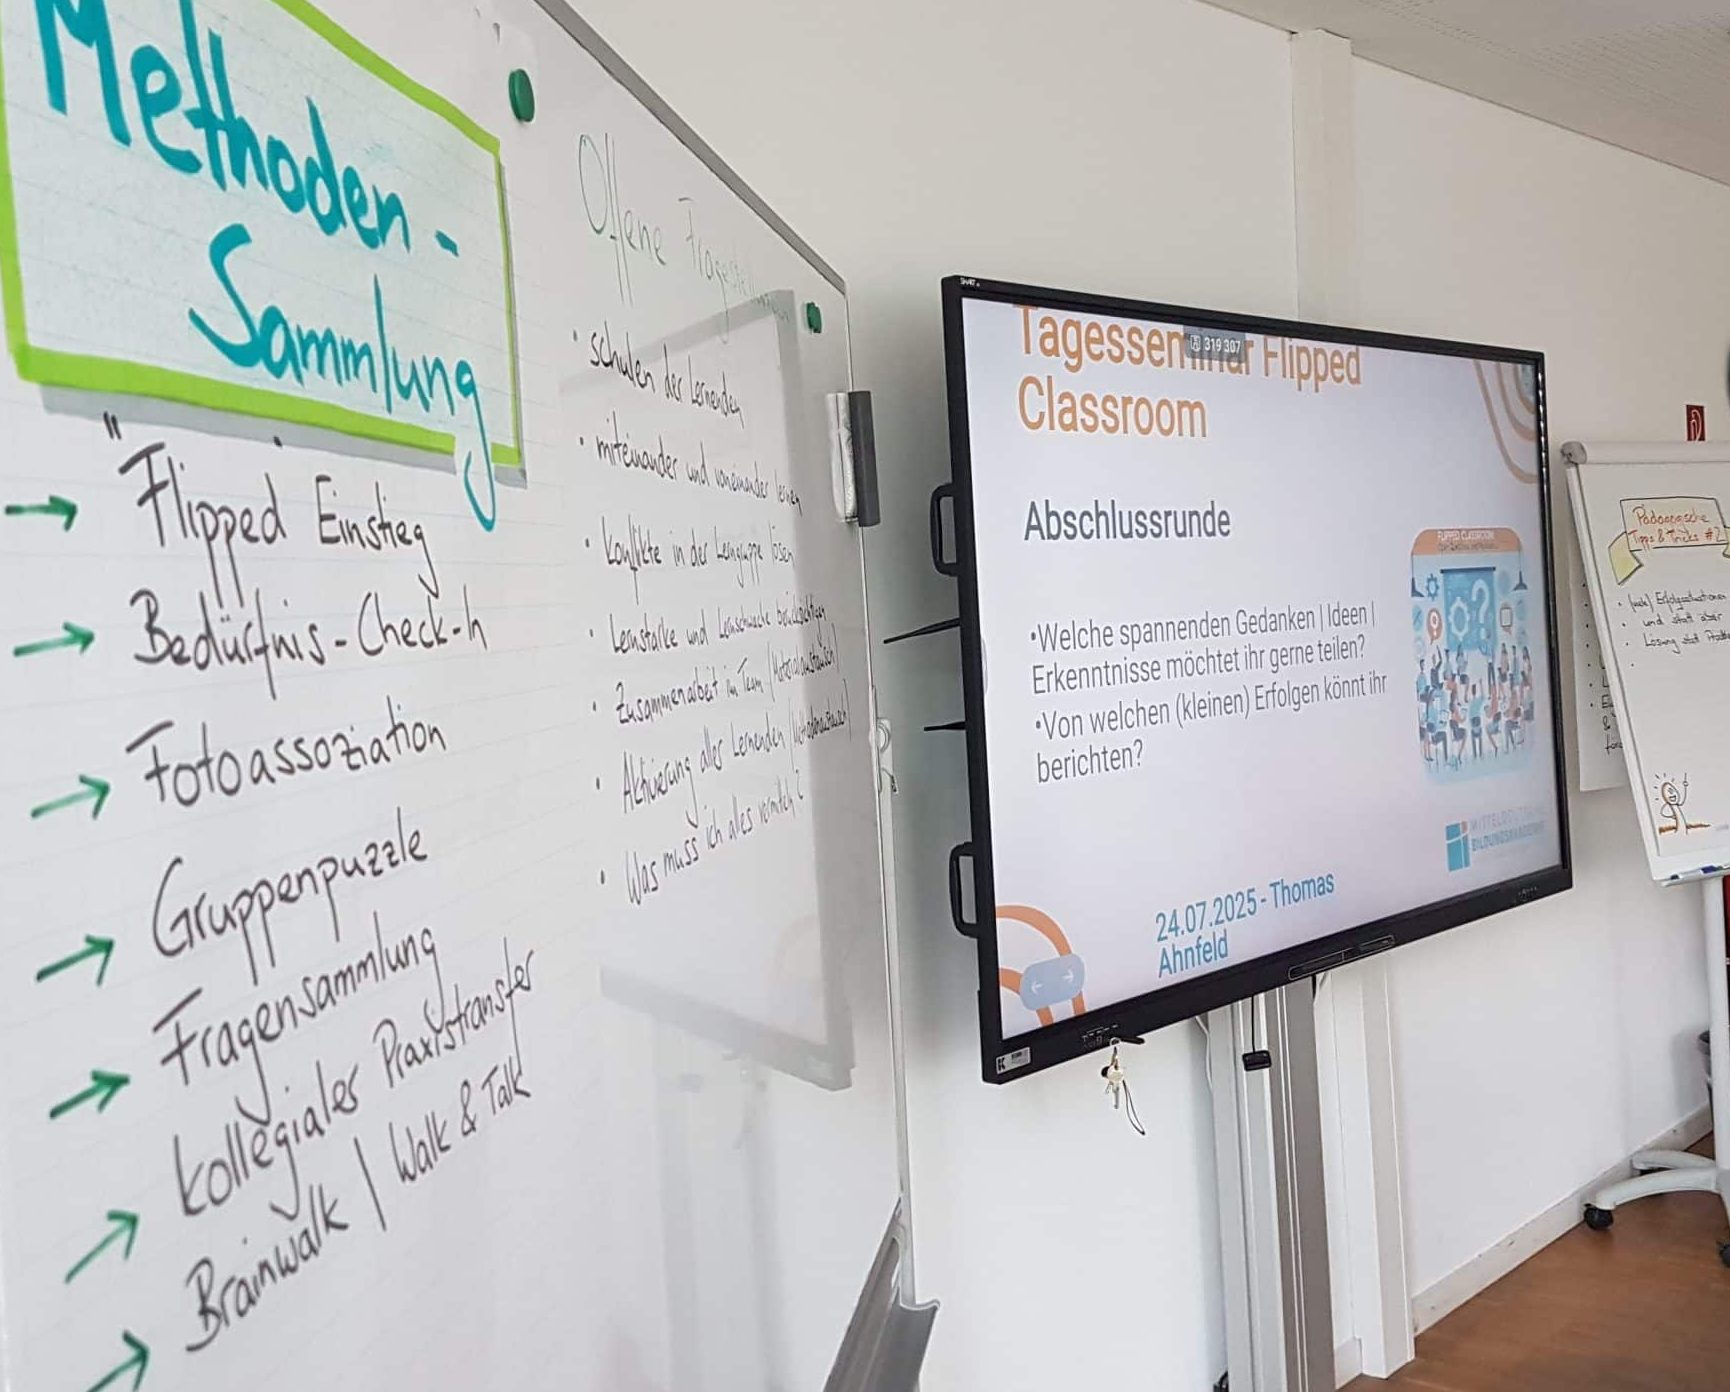 Methoden -
Sammlung
"Flipped" Einstieg
Bedürfnis-Check-In
Fotoassoziation
Gruppenpuzzle
Fragensammlung
kollegialer Praxistransfer
Brainwalk | Walk & Talk
Offene
• schulen der Lernenden
• miteinander und voneinander lernen
• Konflikte in der Lerngruppe lösen
• Lernstarke und Lernschwache berücksichtigen
• Zusammenarbeit im Team (Materialaustausch)
• Aktivierung aller Lernenden (Methodenaustausch)
• Was muss ich alles vermitteln?
SMART
Tagesseminar Flipped
319 307
Classroom
Abschlussrunde
•Welche spannenden Gedanken | Ideen |
Erkenntnisse möchtet ihr gerne teilen?
•Von welchen (kleinen) Erfolgen könnt ihr
berichten?
FLIPPED CLASSROOM
MITTELDEUTSCHE
BILDUNGSAKADEMIE
24.07.2025 - Thomas
Ahnfeld
Pädagogische
Tipps & Tricks #2
• Erfolgssituationen
• und statt aber
• Lösung statt